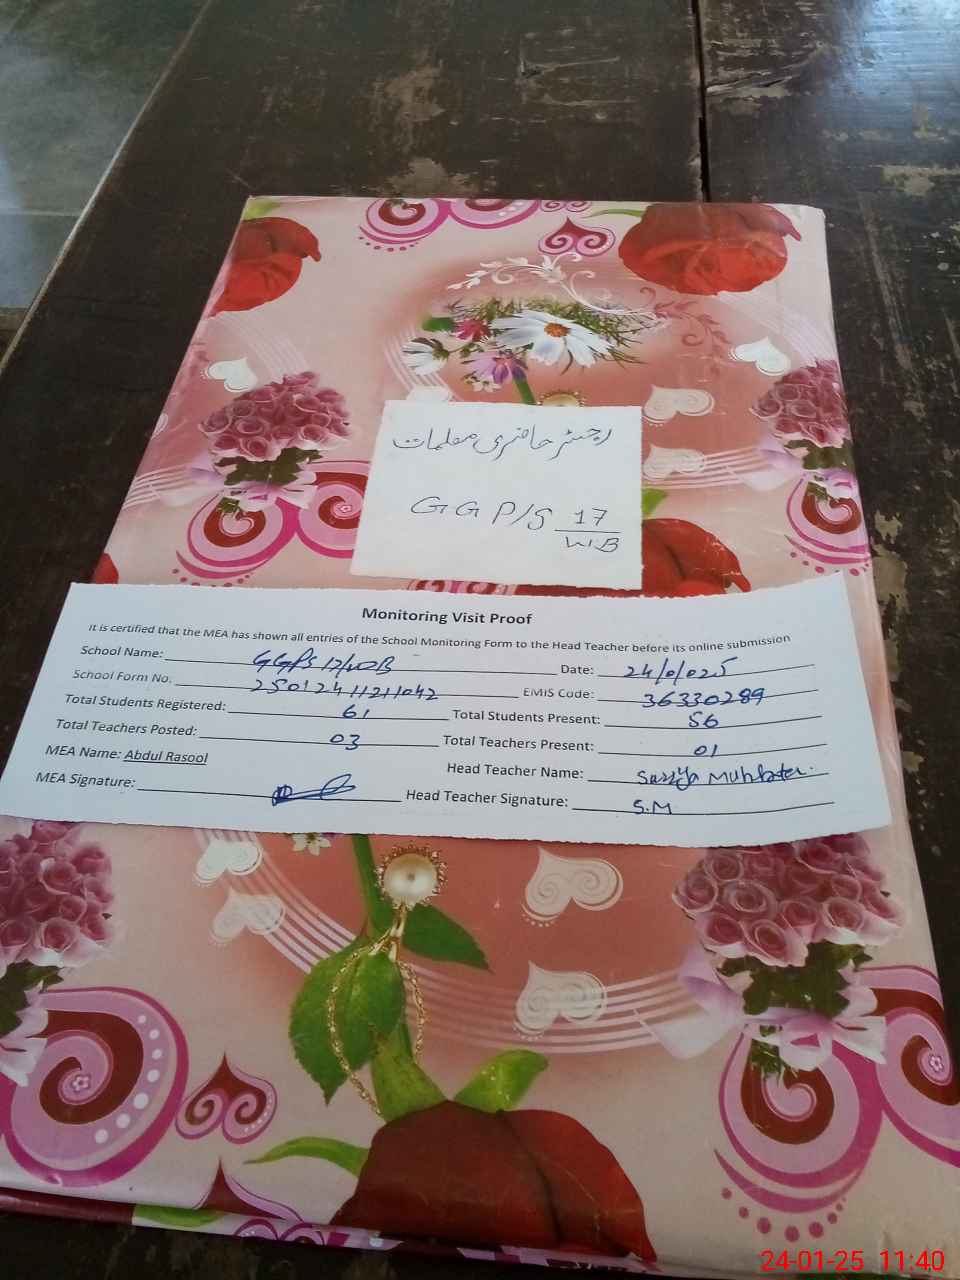 رجسٹر حاضری معلمات
GGP/S 17/W.B
Monitoring Visit Proof
It is certified that the MEA has shown all entries of the School Monitoring Form to the Head Teacher before its online submission
School Name: GGPS 17/WB Date:
School Form No. EMIS Code: 36330289
Total Students Registered: 61 Total Students Present: 56
Total Teachers Posted: 03 Total Teachers Present: 01
MEA Name: Abdul Rasool Head Teacher Name:
MEA Signature: Head Teacher Signature: S.M
24-01-25 11:40